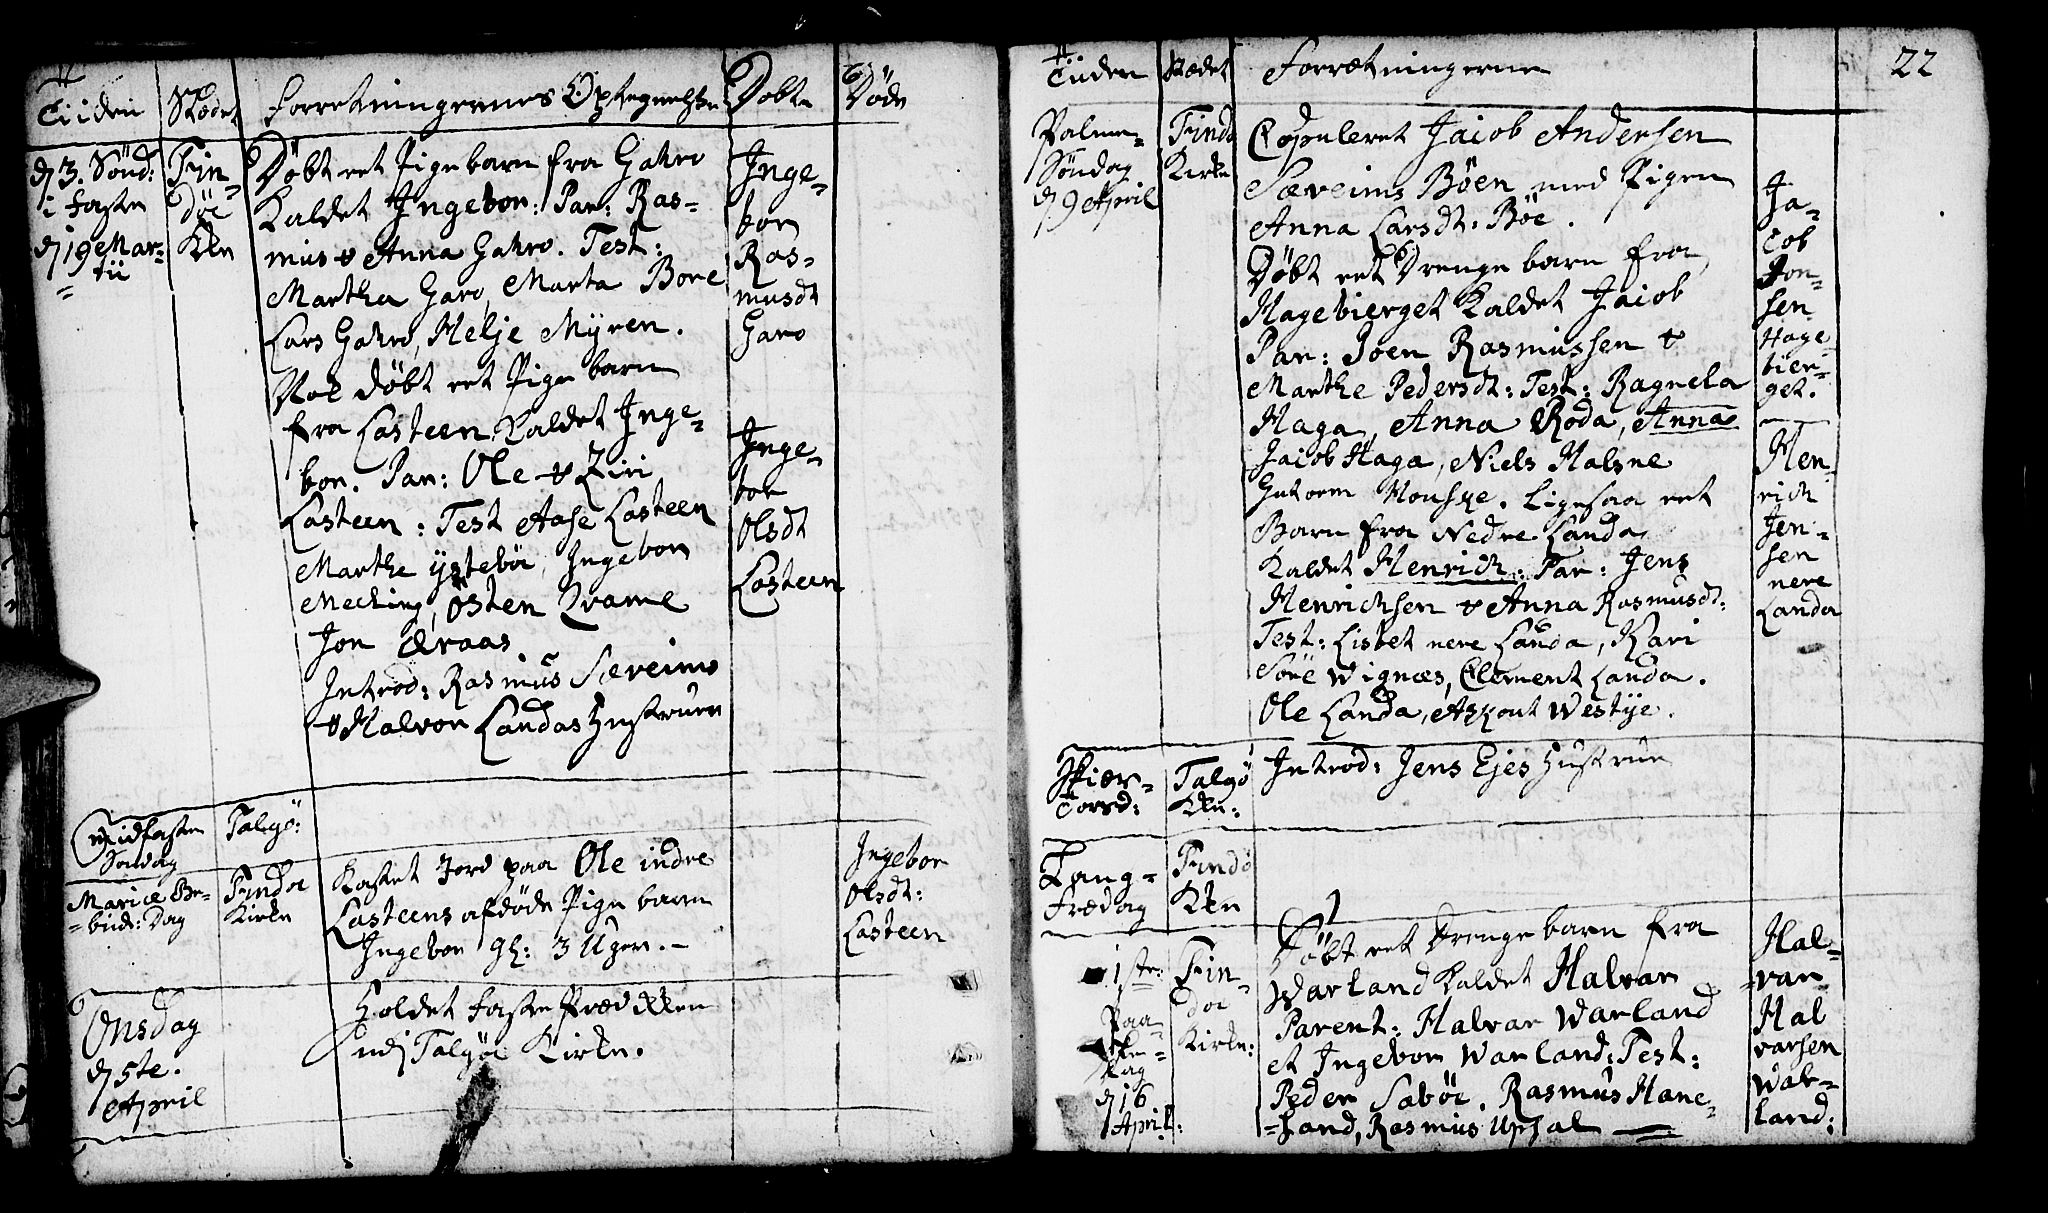 Tiiden Stædet Forretningernes Optegnelse Døbte Døde
d. 3. Sönd:
i Fasten
d. 19 Mar-
tii
Fin-
döe
Kken
Döbt et Pigebarn fra Gahro
Kaldet Ingebor: Par: Ras-
mus & Anna Gahro. Test:
Martha Garo, Marta Bore
Lars Gahro, Helje Myren.
Nok döbt et Pige barn
fra Losteen Kaldet Inge-
bor. Par: Ole & Ziri
Losteen: Test Aase Losteen
Marthe ysteböe, Ingebor
Mecking, Östen Qvame
Jon
Introd: Rasmus Sereims
& Halvor Landas Hustruer
Inge-
bor
Ras-
musdt
Garo
Inge-
bor
Olsdt
Losteen
Midfaste
Söndag
Talgö:
Mariæ Be-
bud: Dag
Findöe
Kirke
Kastet Jord paa Ole indre
Losteens afdöde Pige barn
Ingebor gl: 3 Uger.-
Ingebor
Olsdt:
Losteen
Onsdag
d. 5te.
April
Holdet Faste Prædikken
udj Talgöe Kirke.
Tiiden Stædet Forretningerne 22
Palme-
Söndag
d. 9 April
Findö
Kirke
Copuleret Jacob Andersen
Sæveims Böen med Pigen
Anna Larsdt: Böe.
Döbt et Drenge barn fra
Hagebierget Kaldet Jacob
Par: Joen Rasmussen &
Marthe Pedersdt: Test: Ragnela
Haga, Anna Roda, Anna
Jacob Haga, Niels Halsne
Gutorm Housge. Ligesaa et
Barn fra Nedre Landa
Kaldet Henrich: Par: Jens
Henrichsen & Anna Rasmusdt:
Test: Lisbet nere Landa, Kari
Söre Wignæs, Clement Landa.
Ole Landa, Westye.
Ja-
cob
Jon-
sen
Hage-
bier-
get.
Hen-
rich
Jen-
sen
nere
Landa
Skier-
Torsd:
Talgö
Kken:
Introd: Jens Ejes Hustrue
Lang-
Fredag
Findö
Kken
1ste:
Paa-
ske-
dag
d. 16
April:
Fin-
döe
Kirke:
Döbt et Drenge barn fra
Warland Kaldet Halvar
Parent: Halvar Warland
et Ingebor Warland: Test:
Peder Saböe, Rasmus Hane-
-sand, Rasmus Upsal
Hal-
-var
Hal
varsen
War-
land: